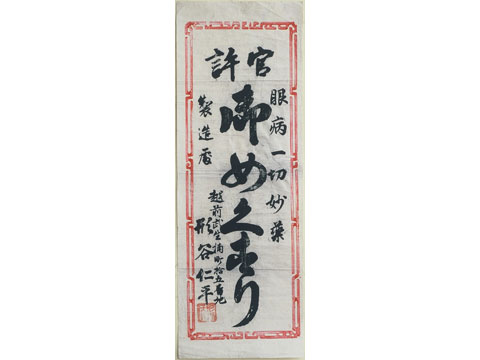 官許
眼病一切妙薬
御めくすり
製造所
越前武生橘町拾五番地
形谷仁平